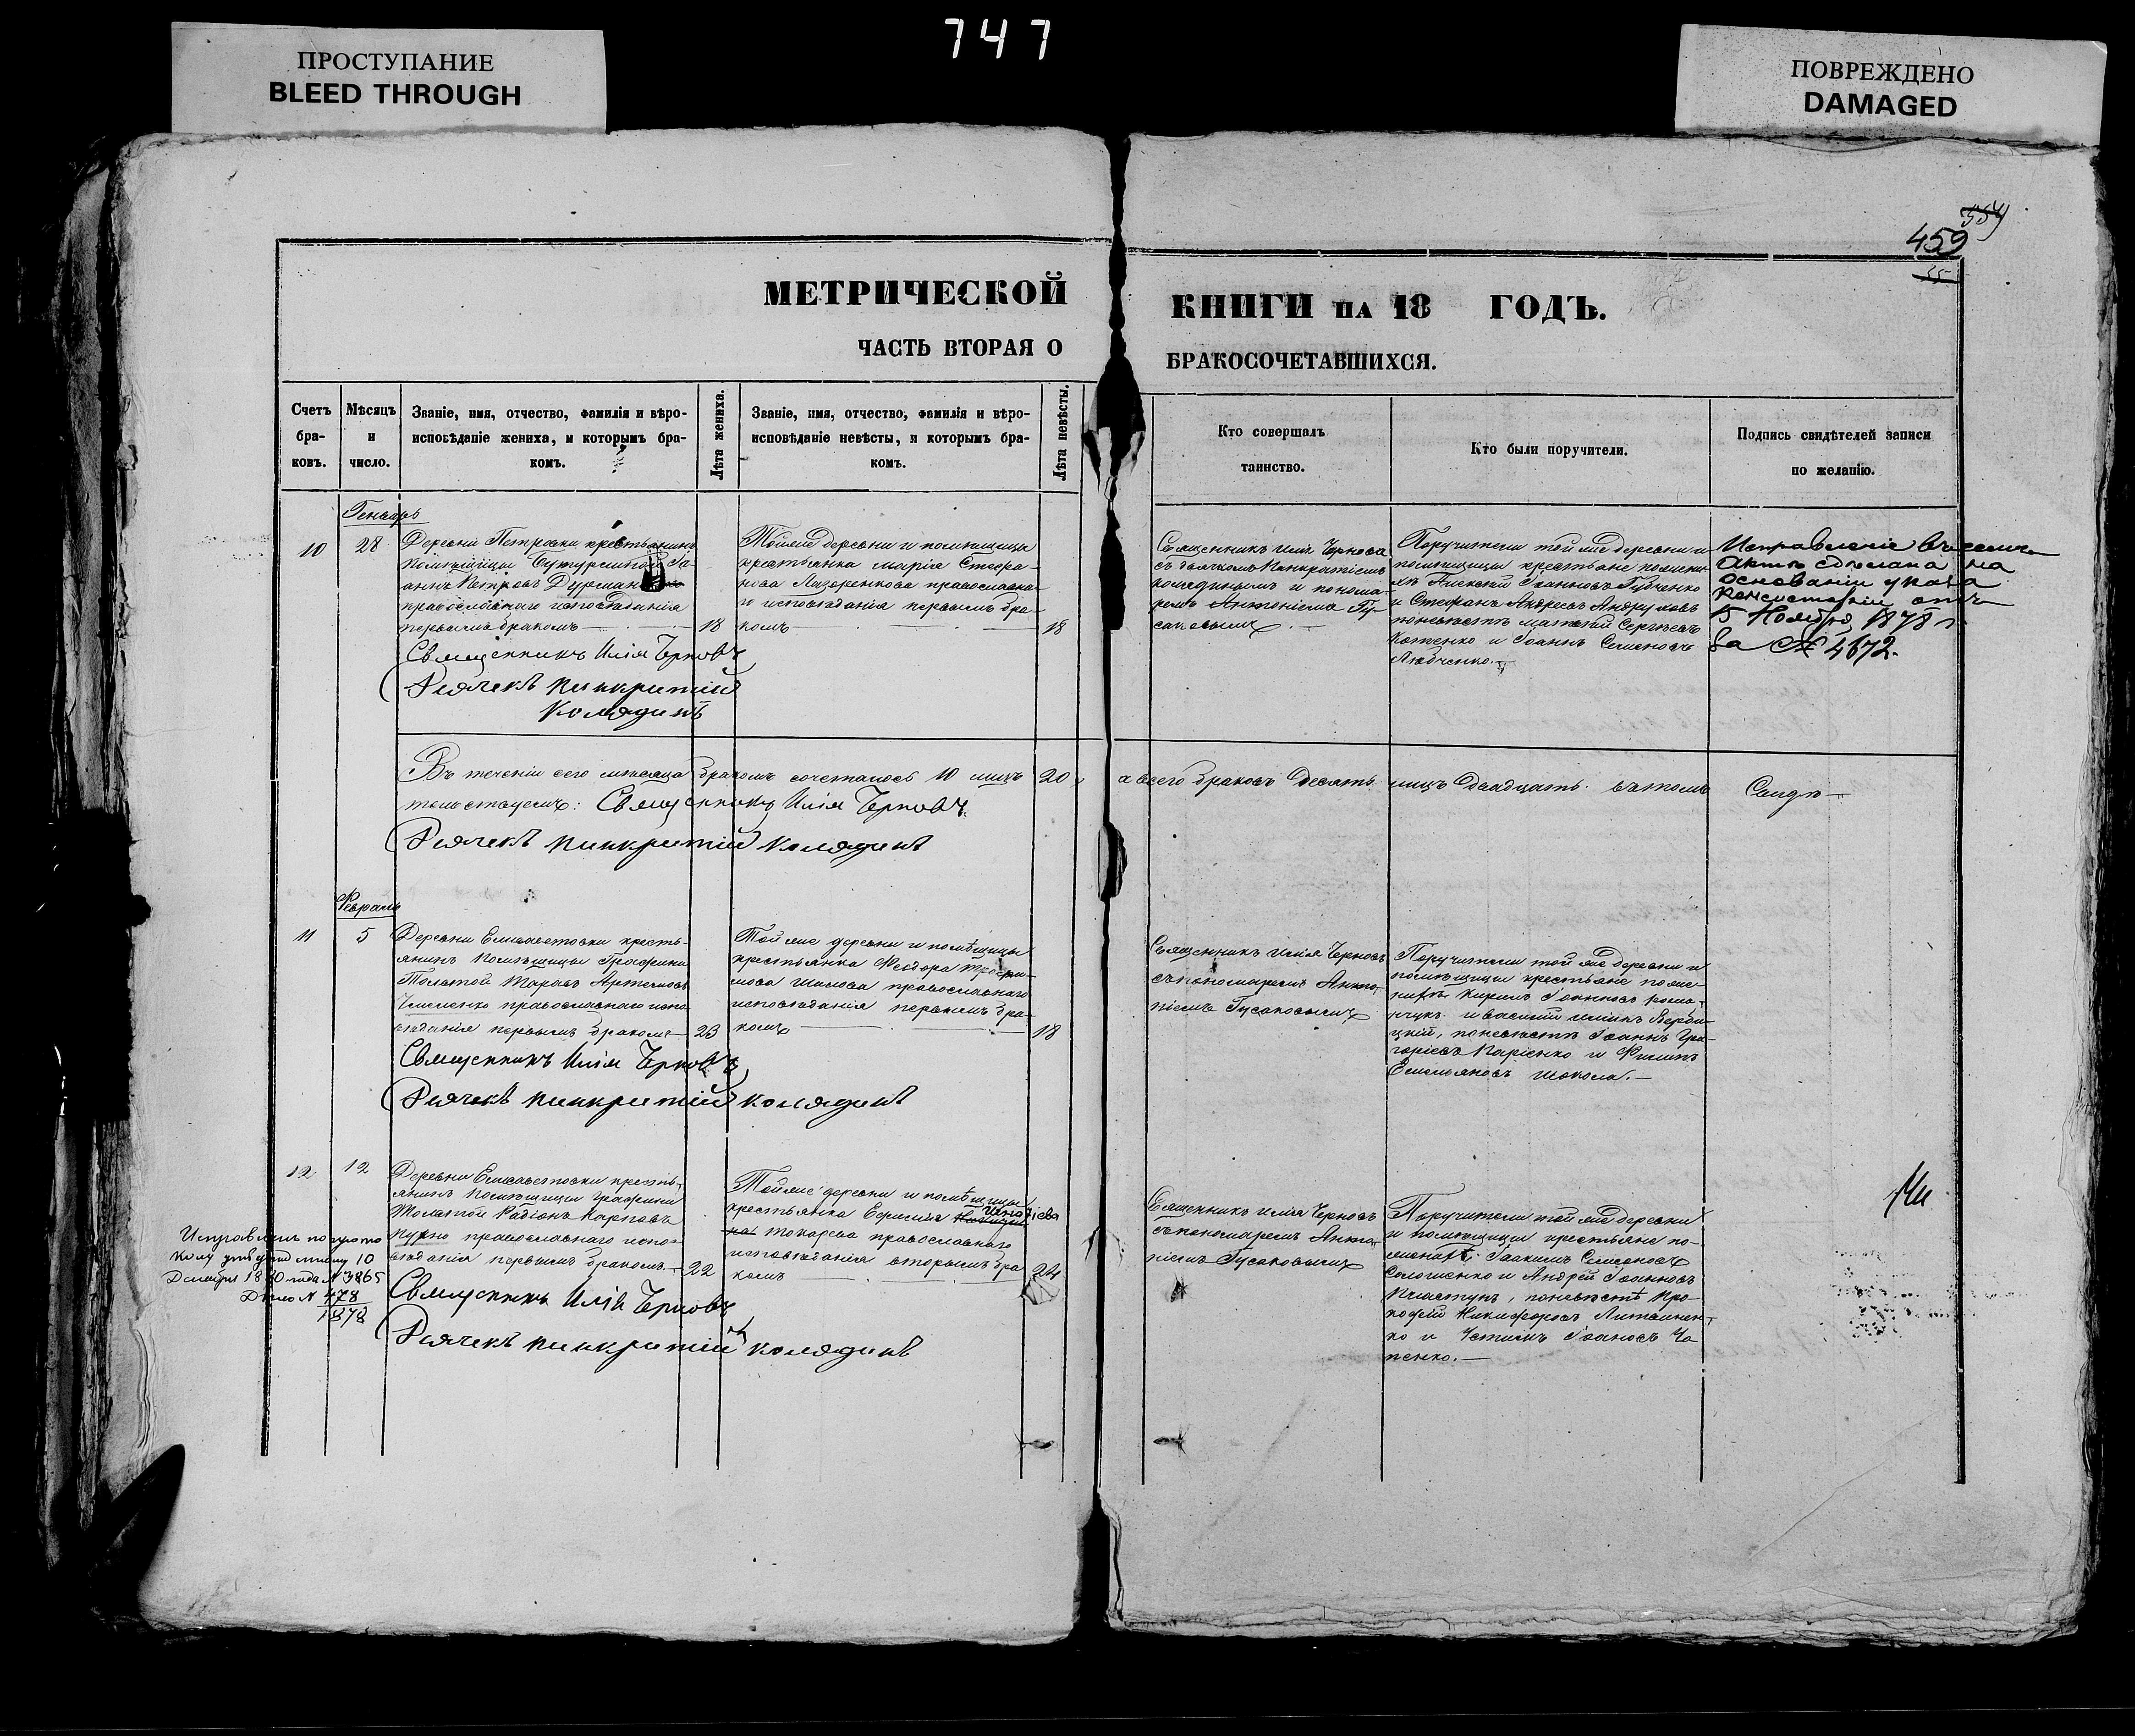 747
ПРОСТУПАНИЕ
BLEED THROUGH
ПОВРЕЖДЕНО
DAMAGED
459
МЕТРИЧЕСКОЙ
КНИГИ НА 18 ГОДЪ.
ЧАСТЬ ВТОРАЯ О
БРАКОСОЧЕТАВШИХСЯ.
Счетъ бра-ковъ.
Мѣсяцъ и число.
Званіе, имя, отчество, фамилія и вѣро-
исповѣданіе жениха, и которымъ бра-
комъ.
Лѣта жениха.
Званіе, имя, отчество, фамилія и вѣро-
исповѣданіе невѣсты, и которымъ бра-
комъ.
Лѣта невѣсты.
Кто совершалъ
таинство.
Кто были поручители.
Подпись свидѣтелей записи
по желанію.
Генварь
10
28
Деревни Петровки крестьянинъ
помѣщицы Іо-
аннъ Петровъ Дурман
православнаго исповѣданія
первымъ бракомъ
18
Священникъ Илія Черновъ
Дьячекъ Панкратій
Колядинъ
Тойже деревни и помѣщицы
крестьянка Марія Стефа-
нова Лазоренкова православна-
го исповѣданія первымъ бра-
комъ
18
Священникъ Илія Черновъ
съ дьячкомъ Панкратіемъ
Колядинымъ и понома-
ремъ Антоніемъ Гу-
саковымъ
Поручители той же деревни и
помѣщицы крестьяне по жени-
хѣ Алексѣй Іоанновъ Губченко
и Стефанъ Андреевъ Андруховъ
по невѣстѣ Матвѣй Сергѣевъ
и Іоаннъ Семеновъ
Любченко.
Исправленіе въ семъ
актѣ сдѣлана на
основаніи указа
Консисторіи отъ
5 Ноября 1878 г.
за № 4672.
Въ теченіи сего мѣсяца бракомъ сочеталось 10 лицъ 20
а всего браковъ десять лицъ двадцать. въ томъ
Священникъ Илія Черновъ
Дьячекъ Панкратій Колядинъ
Февраль
11
5
Деревни Елисаветовки кресть-
янинъ помѣщицы Графини
Толстой Тарасъ Артемовъ
православнаго испо-
вѣданія первымъ бракомъ
23
Священникъ Илія Черновъ
Дьячекъ Панкратій Колядинъ
Той же деревни и помѣщицы
крестьянка Феодора Трофи-
мова Шилова православнаго
исповѣданія первымъ бра-
комъ
18
Священникъ Илія Черновъ
съ пономаремъ Анто-
ніемъ Гусаковымъ
Поручители той же деревни и
помѣщицы крестьяне по же-
нихѣ Кирилъ Іоанновъ Рома-
нчукъ и Василій Ильинъ Верби-
цкій, по невѣстѣ Іоаннъ Гри-
горіевъ и Филипъ
Емельяновъ Шокола.
12
12
Деревни Елисаветовки кресть-
янинъ помѣщицы Графини
Толстой Родіонъ Карповъ
православнаго испо-
вѣданія первымъ бракомъ
22
Священникъ Илія Черновъ
Дьячекъ Панкратій Колядинъ
Тойже деревни и помѣщицы
крестьянка Евфимія Игнатіева
Токарева православнаго
исповѣданія вторымъ бра
комъ
24
10
Декабря 1880 года № 3865
Дѣло № 478
1878
Священникъ Илія Черновъ
съ пономаремъ Анто-
ніемъ Гусаковымъ
Поручители той же деревни
и помѣщицы крестьяне по
женихѣ: Іоакимъ Семеновъ
Солошенко и Андрей Іоанновъ
по невѣстѣ Про-
кофій Никифоровъ Литвинен-
ко и Устинъ Іоановъ Ча
пенко.